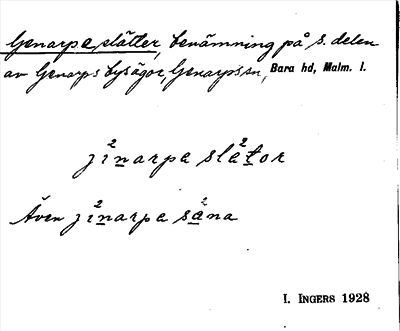 Genarpa slätter, benämning på S. delen
av Genarps bysägor, Genarps sn, Bara hd, Malm. l.
jinarpa slätor
Även jinarpa sana
I. INGERS 1928